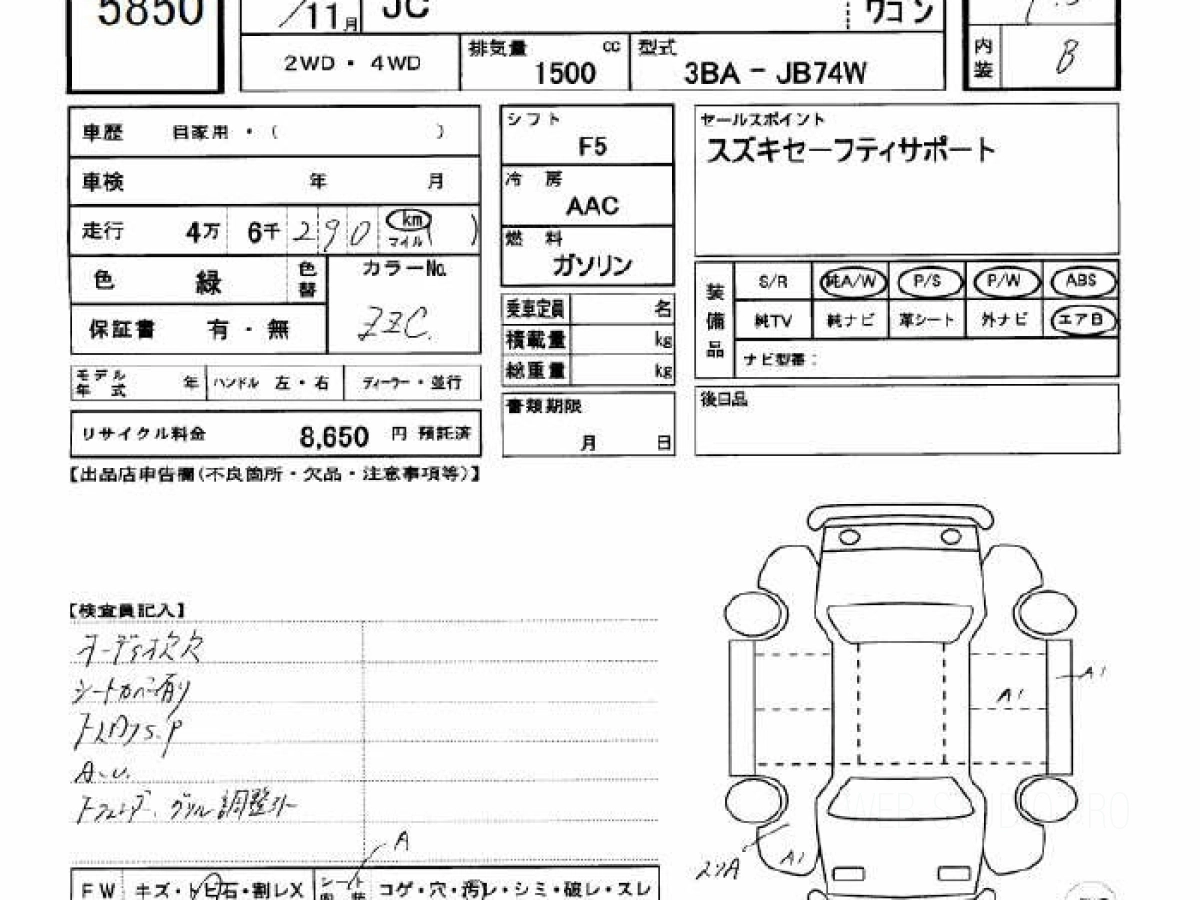 5850
11月
JC
ワゴン
2WD・4WD
排気量 cc
1500
型式
3BA - JB74W
内装
B
車歴 自家用・( )
車検 年 月
走行 4万 6千 290 km
マイル
色 緑
色替
カラーNo.
ZZC.
保証書 有・無
モデル年式 年
ハンドル 左・右
ディーラー・並行
リサイクル料金 8,650 円 預託済
シフト
F5
冷房
AAC
燃料
ガソリン
乗車定員 名
積載量 kg
総重量 kg
書類期限
月 日
セールスポイント
スズキセーフティサポート
装備品
S/R 純A/W P/S P/W ABS
純TV 純ナビ 革シート 外ナビ エアB
ナビ型番:
後日品
【出品店申告欄(不良箇所・欠品・注意事項等)】
【検査員記入】
オーディオ欠
シートカバー有り
A.U.
グリル調整
A
FW キズ・トビ石・割レX
シート
コゲ・穴・汚レ・シミ・破レ・スレ
A1
A1
A1